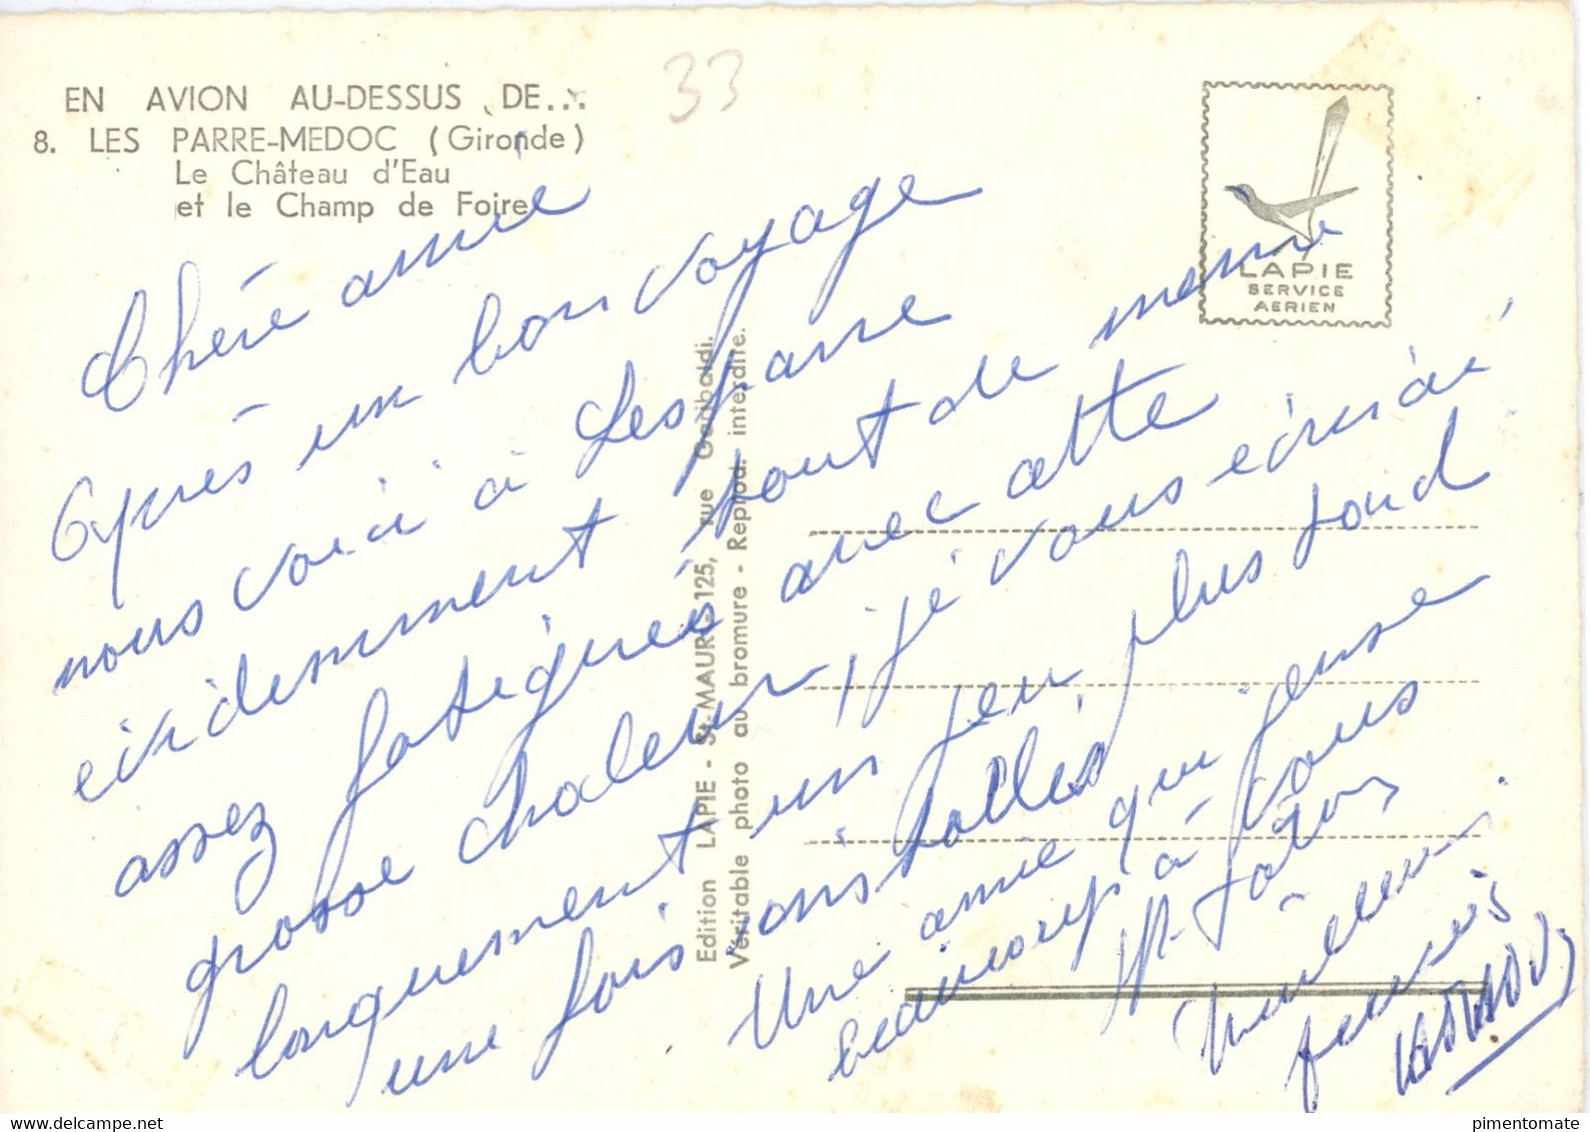 33
EN AVION AU-DESSUS DE...
8. LES PARRE-MEDOC (Gironde)
Le Château d'Eau
et le Champ de Foire
LAPIE
SERVICE
AERIEN
Edition LAPIE - St-MAUR - 125, rue Garibaldi.
Véritable photo au bromure - Reprod. interdite.
Chére amie
Après un bon voyage
nous voici à Lesparre
evidemment tout de meme
assez fatiguées avec cette
grosse chaleur, je vous écrirai
longuement un peu plus tard
une fois installés
Une amie qui pense
beaucoup à vous
Meilleurs
pensées
delcampe.net
pimentomate